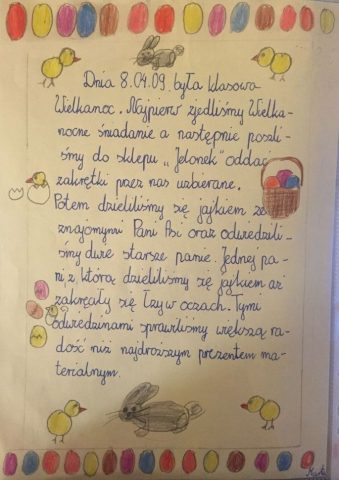 Dnia 8.04.09. była klasowa
Wielkanoc. Najpierw zjedliśmy Wielka-
nocne śniadanie a następnie poszli-
śmy do sklepu „Jelonek" oddać
zakrętki przez nas uzbierane.
Potem dzieliliśmy się jajkiem ze
znajomymi Pani Asi oraz odwiedzili-
śmy dwie starsze panie. Jednej pa-
ni z którą dzieliliśmy się jajkiem aż
zakręcały się łzy w oczach. Tymi
odwiedzinami sprawiliśmy większą ra-
dość niż najdroższym prezentem ma-
terialnym.